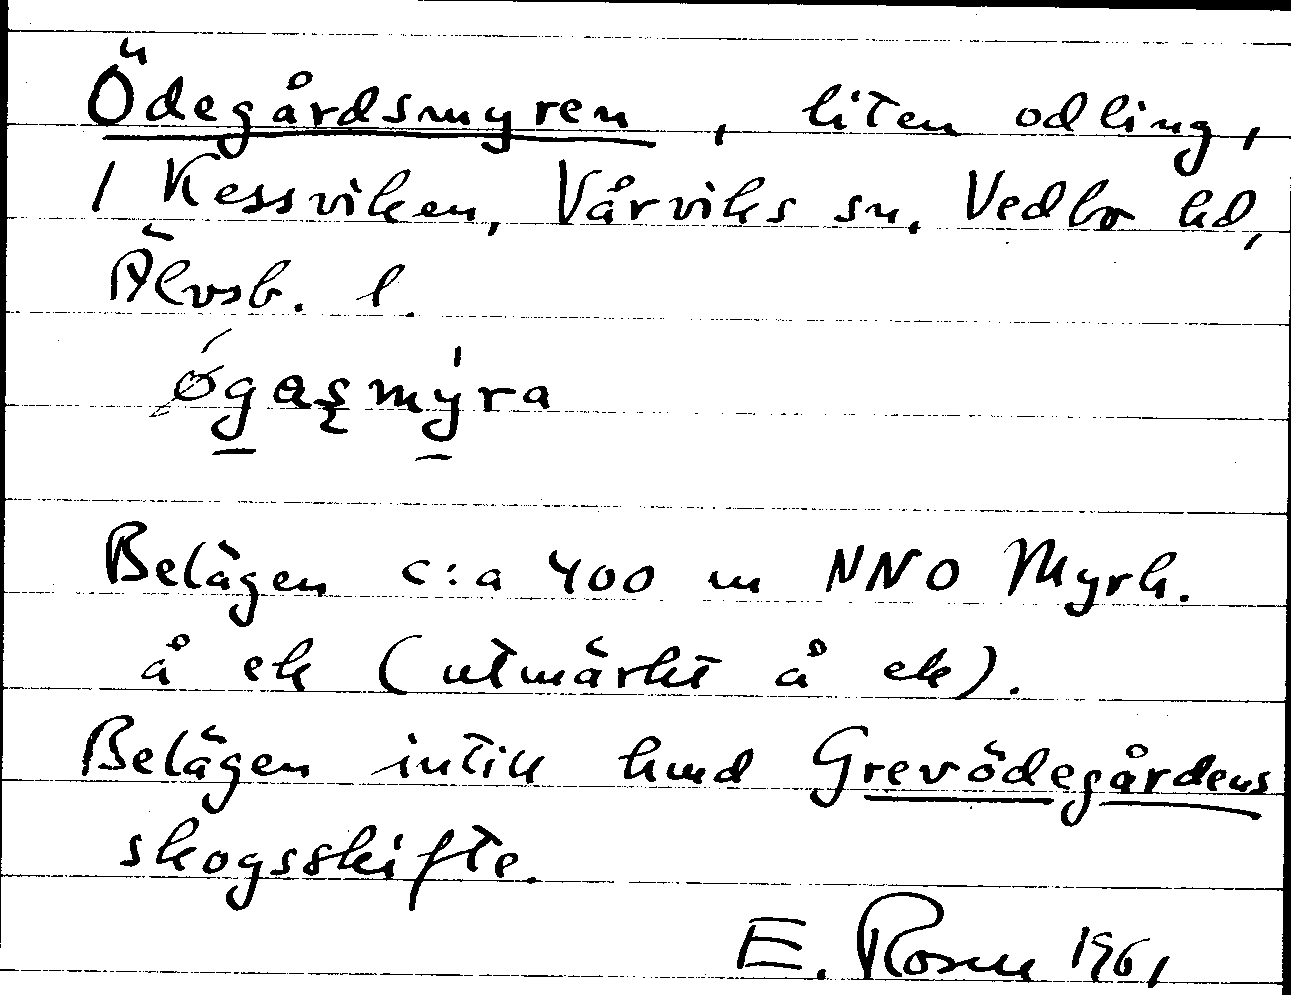 Ödegårdsmyren, liten odling,
/ Kessviken, Vårviks sn, Vedbo hd,
Älvsb. l.
øgasmyra
Belägen c:a 400 m NNO Myrh.
å ek (utmärkt å ek).
Belägen intill hmd Grevödegårdens
skogsskifte.
E. Rosen 1961